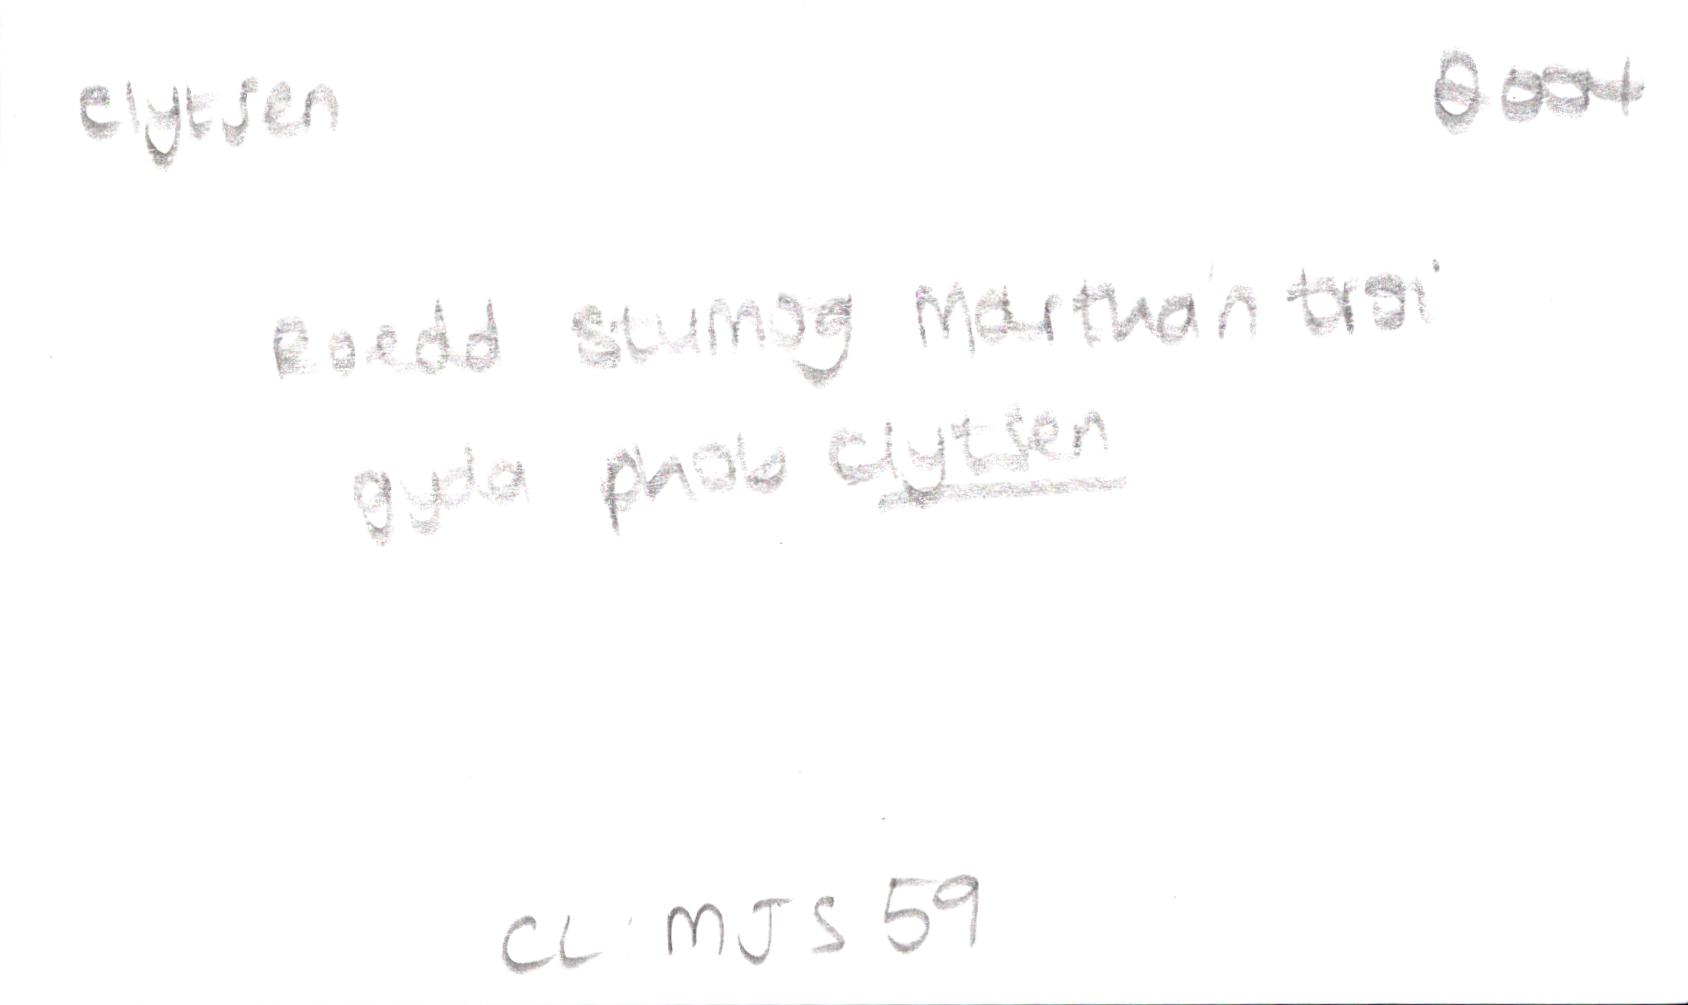 clytsen
Roedd stumog Martha'n troi
gyda phob clytsen
CL: MJS 59